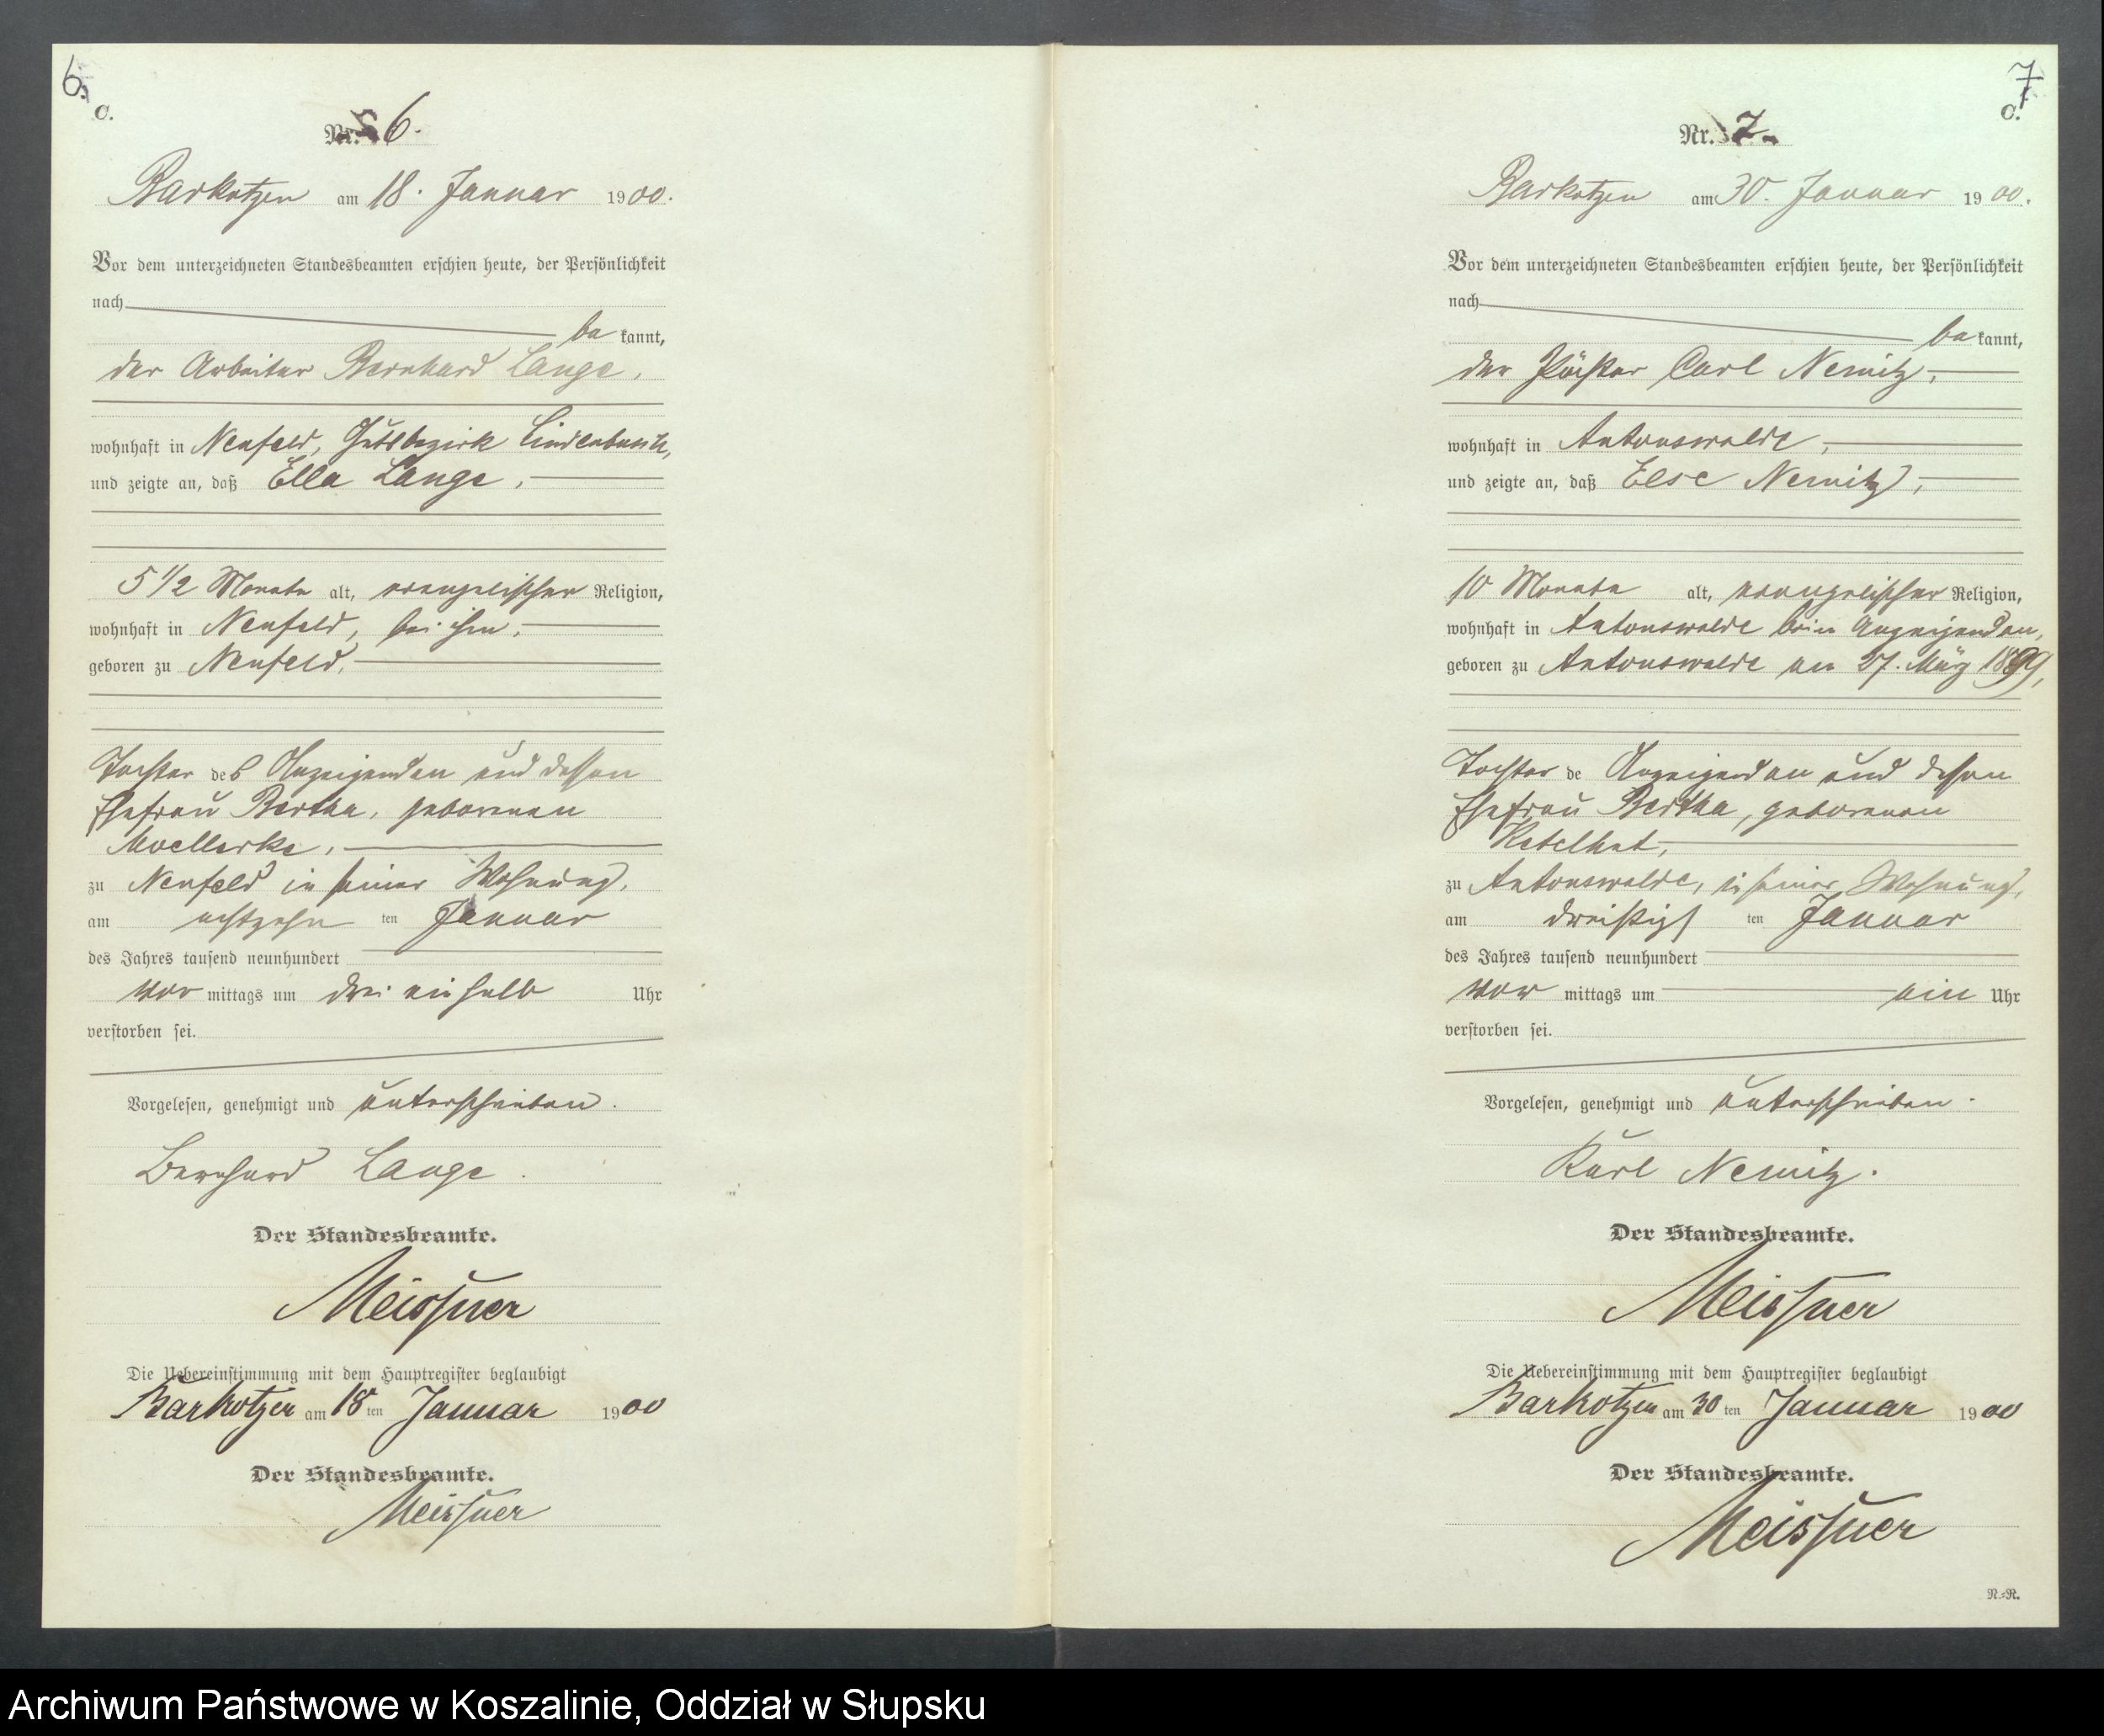 6.
C.
Nr. 6.
Barkotzen am 18. Januar 1900.
Vor dem unterzeichneten Standesbeamten erschien heute, der Persönlichkeit
nach
be kannt,
der Arbeiter Bernhard Lange,
wohnhaft in Neufeld, Gutsbezirk Lindenbusch,
und zeigte an, daß Ella Lange,
5 1/2 Monate alt, evangelischer Religion,
wohnhaft in Neufeld, bei ihm,
geboren zu Neufeld,
Tochter des Anzeigenden und dessen
Ehefrau Bertha, geborenen
Moellerke,
zu Neufeld in seiner Wohnung,
am achtzehn ten Januar
des Jahres tausend neunhundert
Vor mittags um drei einhalb Uhr
verstorben sei.
Vorgelesen, genehmigt und unterschrieben.
Bernhard Lange.
Der Standesbeamte.
Meissner
Die Uebereinstimmung mit dem Hauptregister beglaubigt
Barkotzen am 18 ten Januar 1900
Der Standesbeamte.
Meissner
7
C.
Nr. 7.
Barkotzen am 30. Januar 1900.
Vor dem unterzeichneten Standesbeamten erschien heute, der Persönlichkeit
nach
be kannt,
der Carl Nemitz,
wohnhaft in Antonswalde,
und zeigte an, daß Else Nemitz,
10 Monate alt, evangelischer Religion,
wohnhaft in Antonswalde beim Anzeigenden,
geboren zu Antonswalde am 27. März 1899,
Tochter de Anzeigenden und dessen
Ehefrau Bertha, geborenen
Ketelhut,
zu Antonswalde, in seiner Wohnung,
am dreißigs ten Januar
des Jahres tausend neunhundert
Vor mittags um ein Uhr
verstorben sei.
Vorgelesen, genehmigt und unterschrieben.
Karl Nemitz.
Der Standesbeamte.
Meissner
Die Uebereinstimmung mit dem Hauptregister beglaubigt
Barkotzen am 30 ten Januar 1900
Der Standesbeamte.
Meissner
N.=R.
Archiwum Państwowe w Koszalinie, Oddział w Słupsku